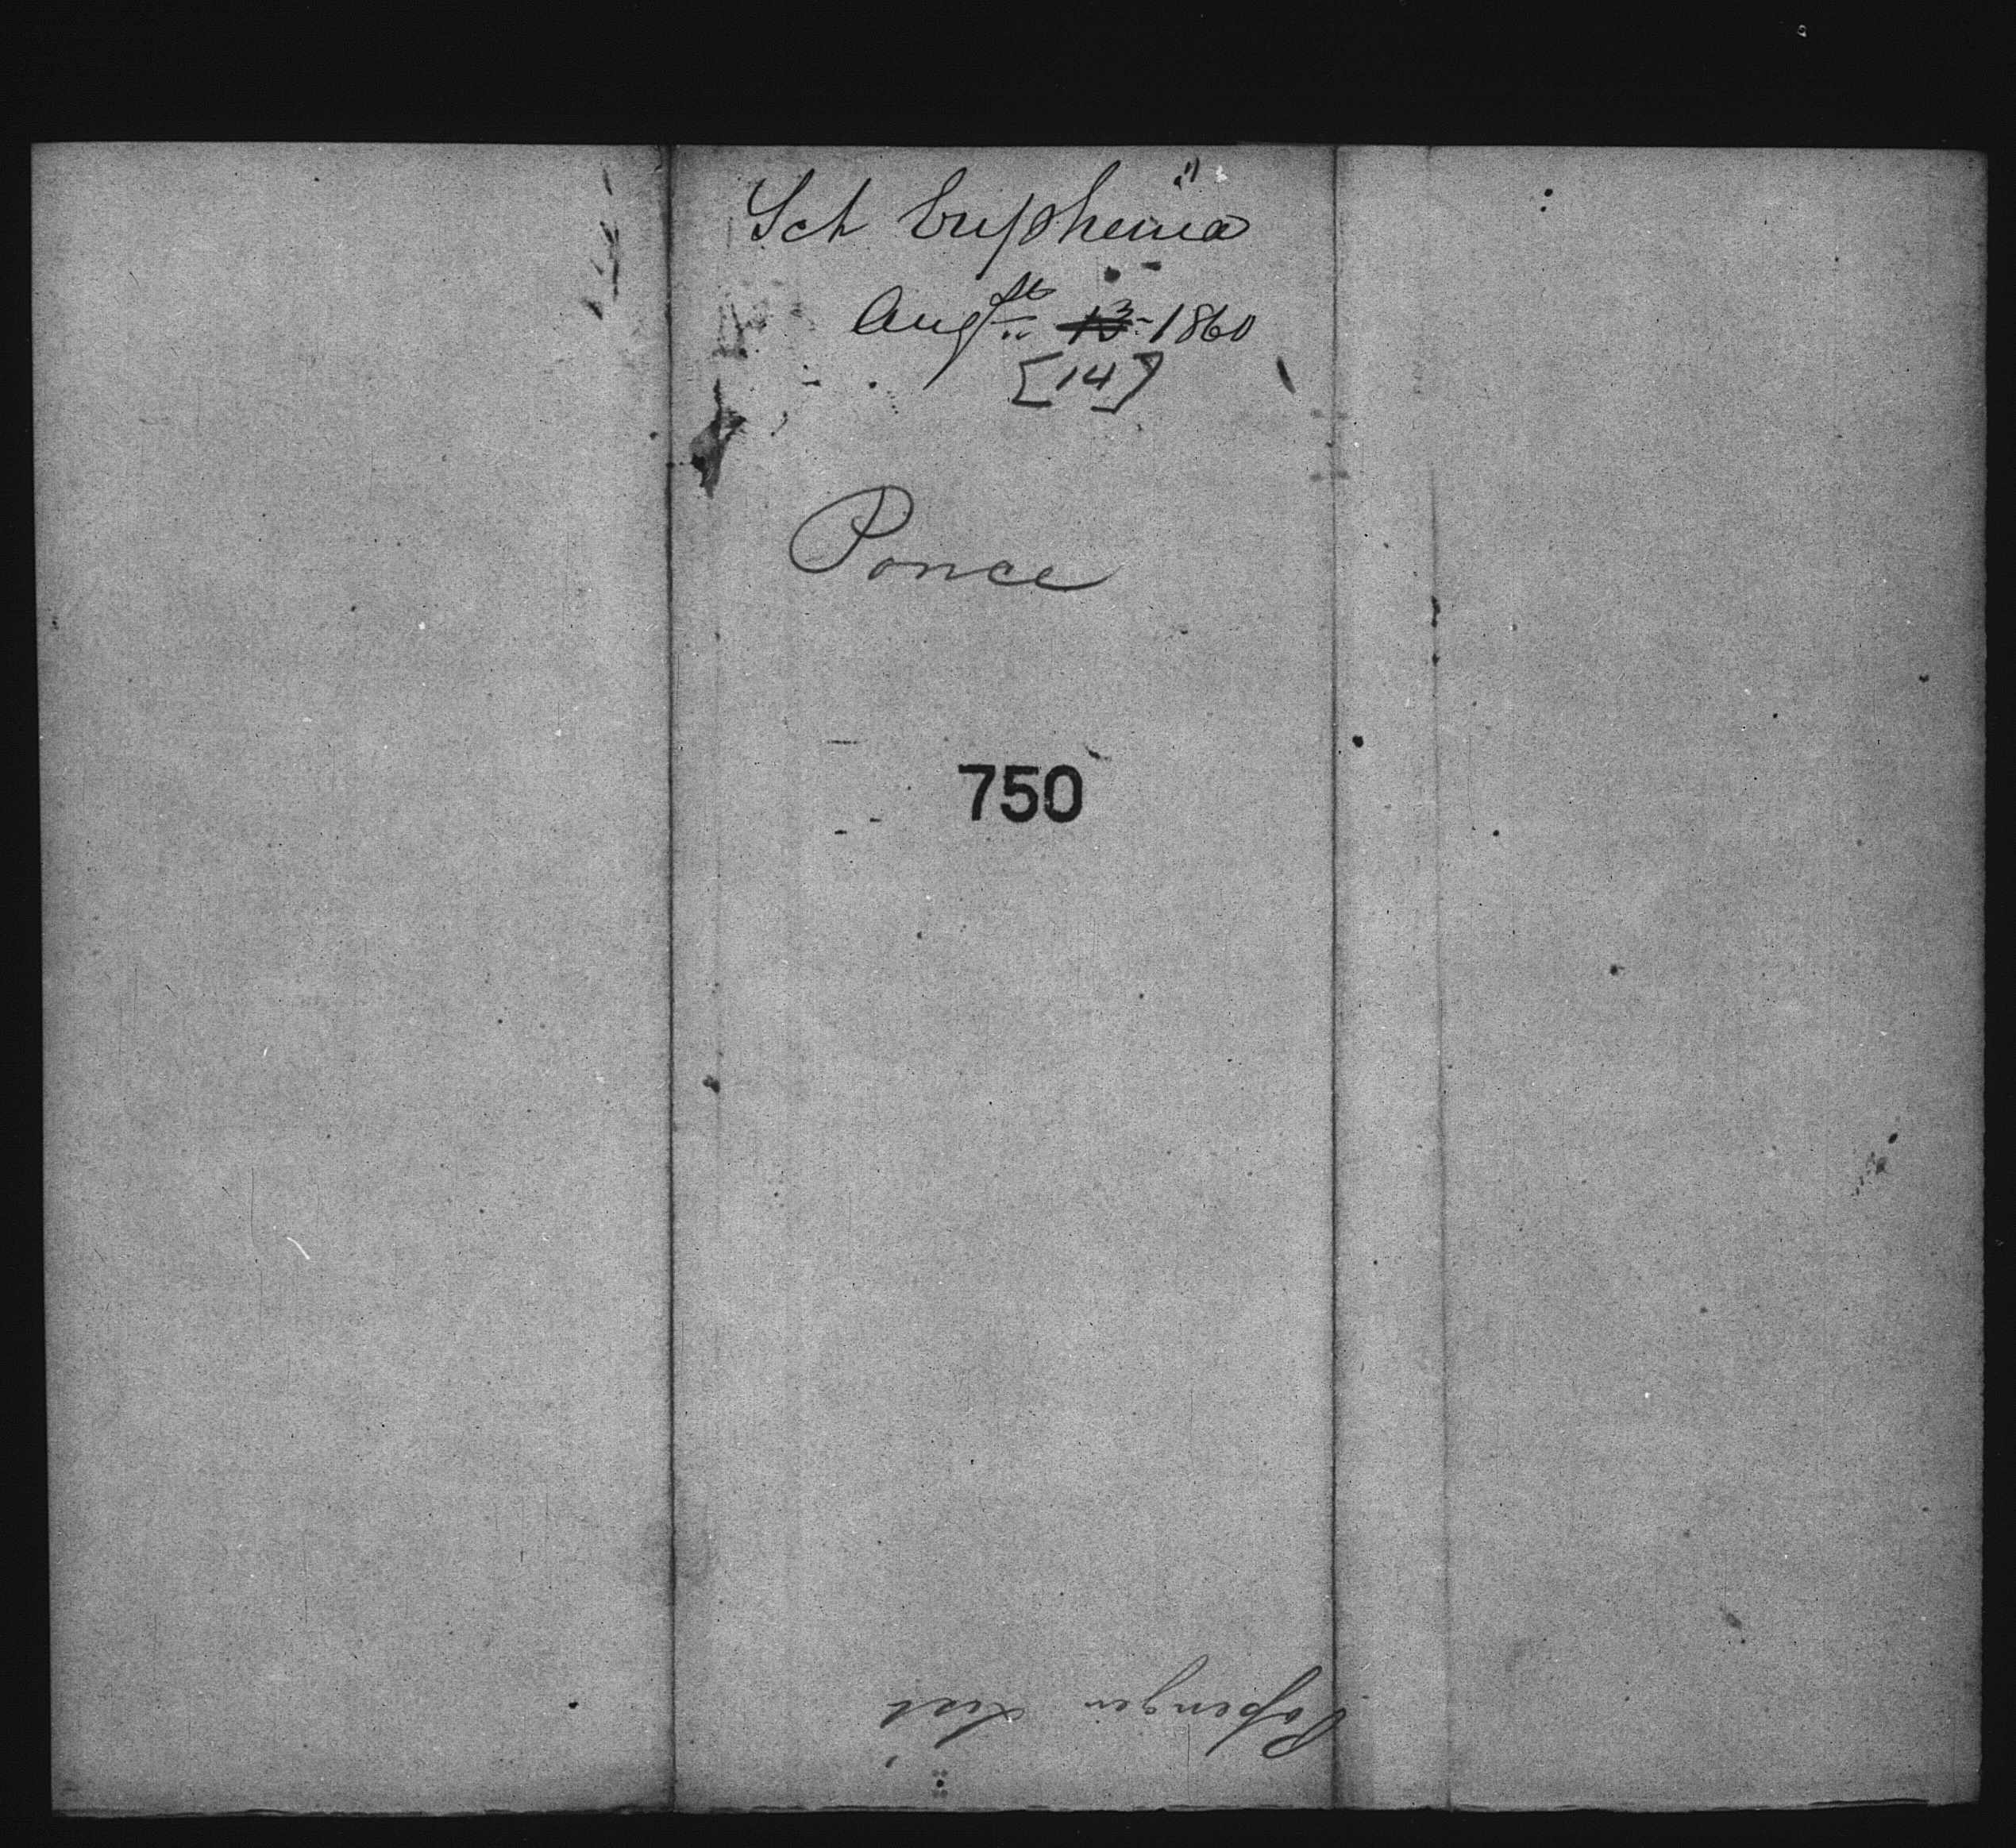 Sch Euphemia "
Augst 13-1860
[14]
Ponce
750
Passenger List